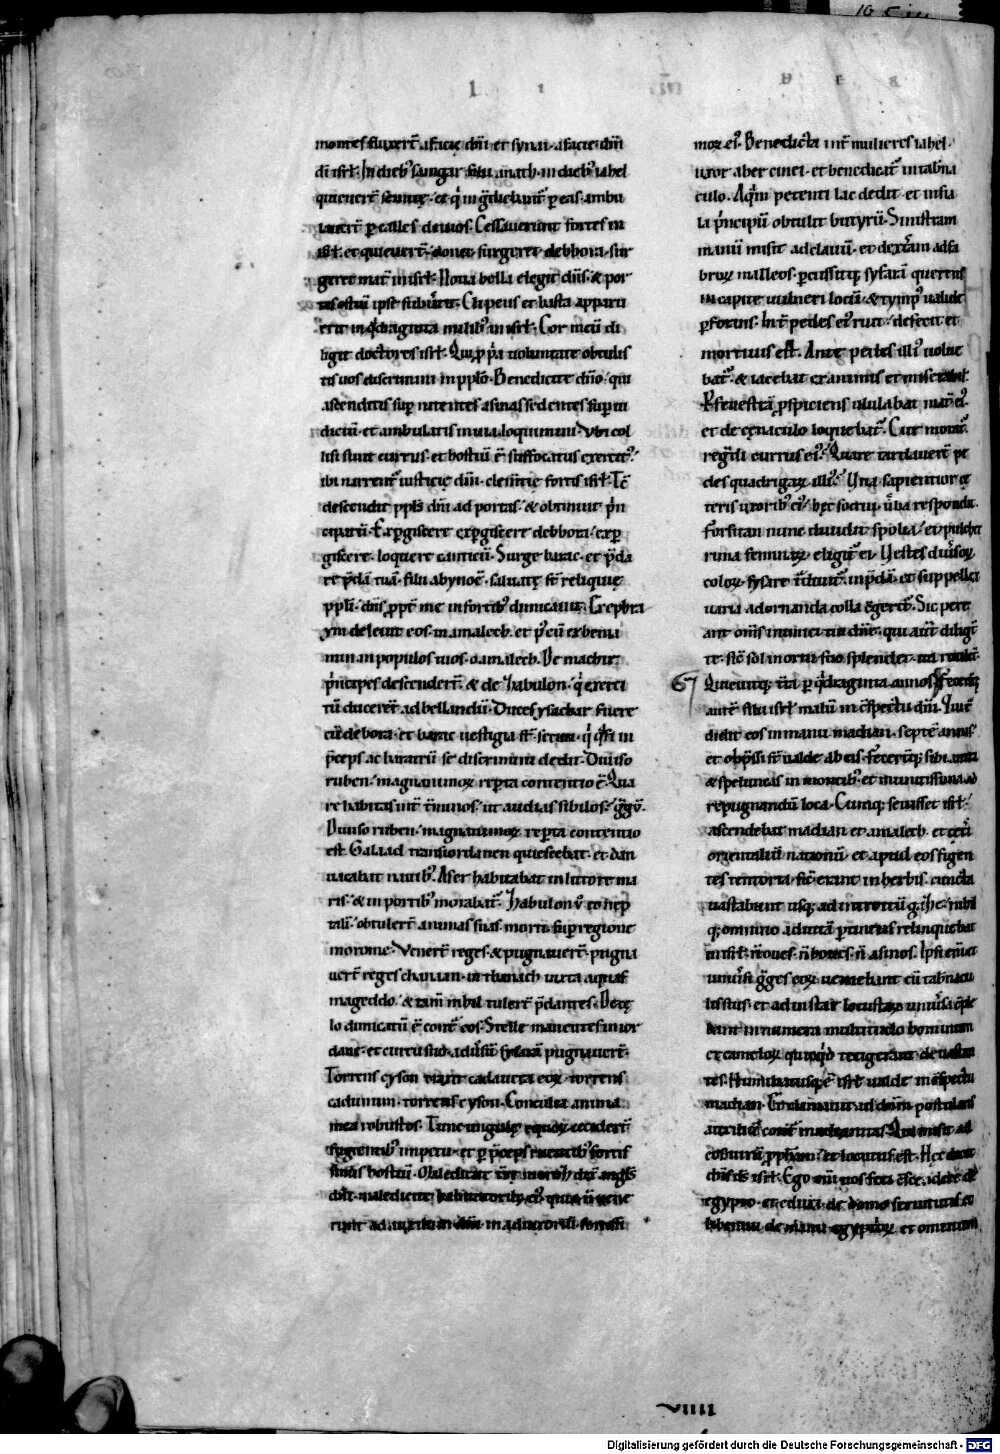 l i
montes fluxert̄ a facie dn̄i et synai a facie dn̄i
di isrl̄. In dieb; sangar filii anath in dieb; iahel
quieuert̄ semitę. et q̇ in g̃diebant᷑ ꝑ eas. ambu
lauert̄ ꝑ calles deuios. Cessauerunt fortes in
isrl̄. et quieuert̄. donec surgeret debbora. sur
geret mat̄ in isrl̄. Noua bella elegit dn̄s. & por
tas ostiū ipse subūtit. Clipeus et hasta apparu
erit in q̃draginta milib; in isrl̄. Cor meū di
ligit doctores isrl̄. Qui ꝓpa uoluntate obtulis
tis uos discrimini in pplo. Benedicite dn̄o. qui
ascenditis suꝑ nitentes asinas. sedentes suꝑ iu
diciū. et ambulatis in uia. loquimini. Vbi col
lisi sunt currus. et hostiū ē suffocatus exercit᷑.
ibi narrent᷑ iusticię dn̄i. clem̄tię fortis isrl̄. Tc̄
descendit ppl̄s dn̄i ad portas. & obtinuit p̄n
cipatū. Exꝑgiscere exꝑgiscere debbora. exꝑ
giscere. loquere canticū. Surge barac. et p̄da
re p̄dā tuā. fili abynoē. saluatę st̄ reliquię
ppl̄i. dn̄s ꝓpt̄ me in fortib; dimicauit. Ex ephra
ym deleuit eos in amalech. et p᷑ eū ex benia
min in populos tuos. o amalech. De machir
p̄ncipes descendert̄. & de zabulon. q̇ exerci
tū ducerēt ad bellandū. Duces ysachar fuere
cū debora. et barac uestigia st̄ secuti. q̇ q̃si in
p̄ceps ac baratrū se discrimini dedit. Diuiso
ruben. magnanimoꝝ reꝑta contentio ē. Qua
re habitas int̄ t̄minos. ut audias sibilos gg̃ū.
Diuiso ruben. magnanimoꝝ reꝑta contentio
est. Galaad trans iordanen quiescebat. et dan
uacabat nauib;. Aser habitabat in littore ma
ris. & in portib; morabat᷑. Zabulon ū et nep
tali. obtulert̄ animas suas morti suꝑ regione
morome. Venert̄ reges & pugnauert̄. pugna
uert̄ reges chanaan. in thanach iuxta aquas
mageddo. & tam̄ nihil tulert̄ p̄dantes. De cę
lo dimicatū ē cont̄ eos. Stelle manentes in or
dine. et cursu suo. adūsū sysarā pugnauert̄.
Torrens cyson traxit cadauera eoꝝ. torrens
cadumim. torrens cyson. Conculca anima
mea robustos. Tunc ungulę equoꝝ ceciderūt
fugientib; impetu. et ꝑ p̄ceps ruentib; fortis
simis hostiū. Maledicite t̄re meroz dix̄ angl̄s
dn̄i. maledicite habitatorib; ei᷑. quia n̄ uene
runt ad auxiliū dn̄i in adiutoriū fortissi
moꝝ ei᷑. Benedicta int̄ mulieres iahel
uxor aber cinei. et benedicat᷑ in tab̄na
culo. Aq̄m petenti lac dedit. et in fia
la p̄ncipū obtulit butyrū. Sinistram
manū misit ad clauū. et dextram ad fa
broꝝ malleos. ꝑcussitq; sysarā querens
in capite uulneri locū. & tymp᷑ ualide
ꝑforans. Int̄ pedes ei᷑ ruit. defecit et
mortuus est. Ante pedes illi᷑ uolue
bat᷑. & iacebat exanimis et miserabil.
ꝑ fenestrā ꝓspiciens ululabat mat̄ ei᷑.
et de cęnaculo loquebat᷑. Cur morat᷑
regredi currus ei᷑. Quare tardauert̄ pe
des quadrigaꝝ illi᷑. Vna sapientior cę
teris uxorib; ei᷑. hęc socrui ūba respondit.
Forsitan nunc diuidit spolia. et pulcher
rima feminaꝝ eligit᷑ ei. Vestes diūsoꝝ
coloꝝ sysare t̄dunt᷑ in p̄dā. et suppellex
uaria ad ornanda colla cgerit᷑. Sic pere
ant om̄s inimici tui dn̄e. qui aūt diligūt
te. sic̄ sol in ortu suo splendet. ita rutilēt.
Quieuitq; t̄ra ꝑ q̃draginta annos. Fecertq;
aut̄ filii isrl̄ malū in cspectu dn̄i. Qui t̄
didit eos in manu madian. septē annis.
et opp̄ssi st̄ ualde ab eis. Fecertq; sibi antra
& speluncas in montib; et munitissima ad
repugnandū loca. Cumq; seuisset isrl̄.
ascendebat madian et amalech. et cet̄i
orientaliū nationū. et apud eos figen
tes tentoria. sic̄ erant in herbis. cuncta
uastabant usq; ad introitū gazę. nihil
q; omnino ad uitā ꝑtinens relinquebat
in isrl̄. n̄ oues. n̄ boues. n̄ asinos. Ipsi eni et
uniūsi gg̃es eoꝝ ueniebant cū tab̄nacu
lis suis. et ad instar locustaꝝ uniūsa cple
bant. innumera multitudo hominum
et cameloꝝ. quicq̇d tetigerant deuastan
tes. Humiliatusq; ē isrl̄ ualde in cspectu
madian. Et clamauit ad dn̄m postulans
auxiliū cont̄ madianitas. Qui misit ad
eos uirū ꝓphetam. et locutus est. Hęc dicit
dn̄s ds̄ isrl̄. Ego uos feci cscendere de
egypto. et eduxi de domo seruitutis. et
liberaui de manu egyptioꝝ et omnium
VIIII
Digitalisierung gefördert durch die Deutsche Forschungsgemeinschaft - DFG